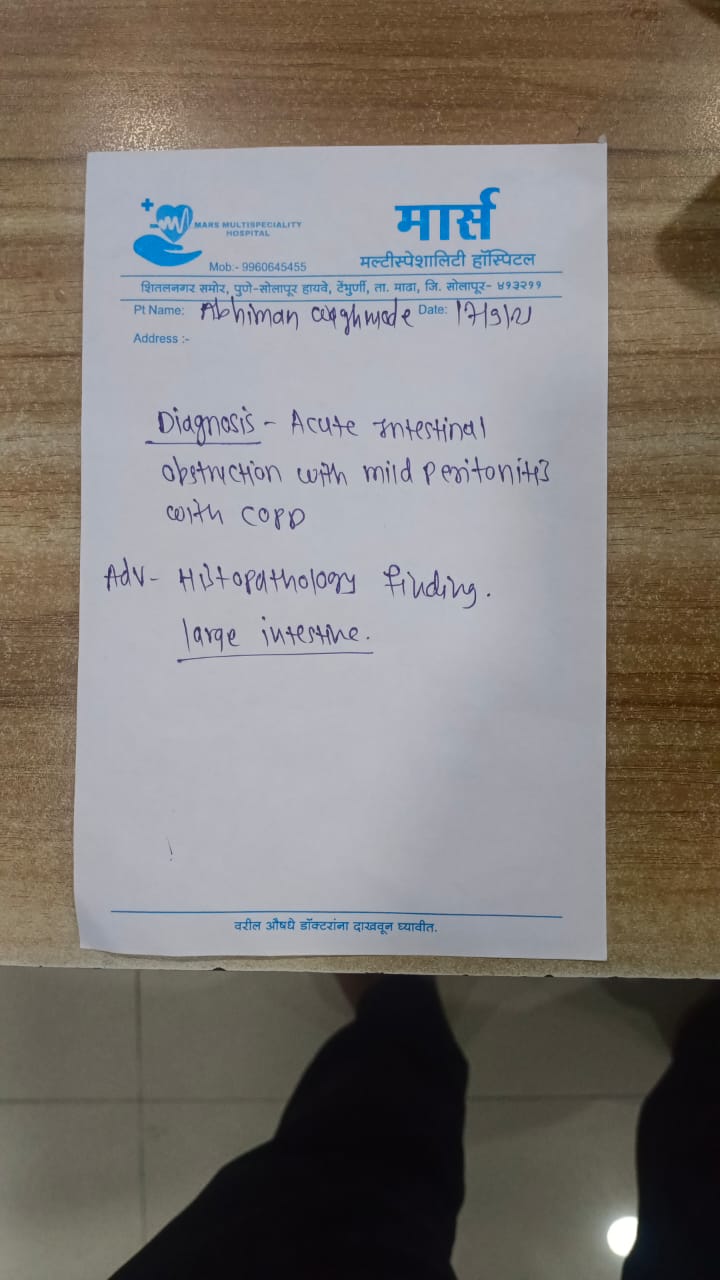 MARS MULTISPECIALITY
HOSPITAL
मार्स
मल्टीस्पेशालिटी हॉस्पिटल
Mob:- 9960645455
शितलनगर समोर, पुणे-सोलापूर हायवे, टेंभुर्णी, ता. माढा, जि. सोलापूर- ४१३२११
Pt Name: Abhiman waghmode Date: 17/9/21
Address :-
Diagnosis - Acute intestinal
obstruction with mild peritonitis
with COPD
Adv - Histopathology finding.
large intestine.
वरील औषधे डॉक्टरांना दाखवून घ्यावीत.